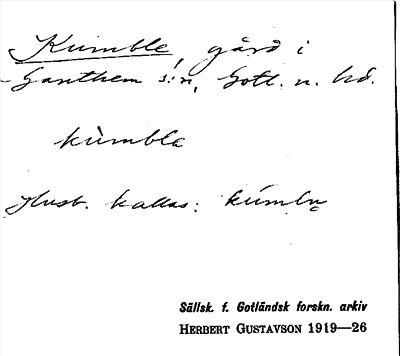 Kumble, gård i
Ganthem s:n, Gotl. n. hd.
kùmbla
Husb. kallas: kúmlu̥
Sällsk. f. Gotländsk forskn. arkiv
HERBERT GUSTAVSON 1919—26